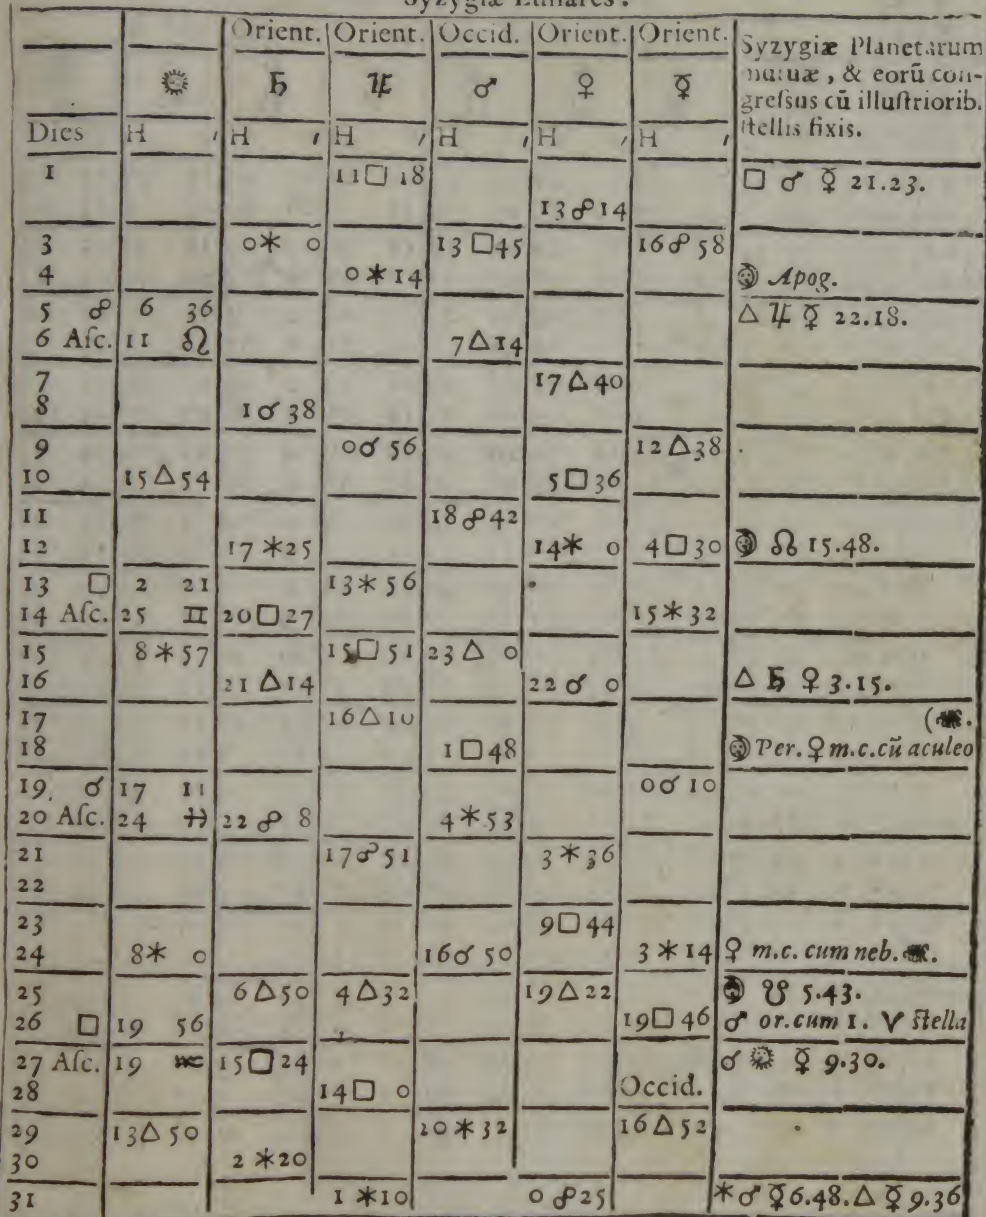 Syzygiæ Lunares.
Orient. Orient. Occid. Orient. Orient. Syzygiæ Planetarum
☼ ♄ ♃ ♂ ♀ ☿ mutuæ, & eorũ con-
greſsus cũ illuſtriorib.
Dies H ′ H ′ H ′ H ′ H ′ H ′ ſtellis fixis.
1 11□18 □ ♂ ☿ 21.23.
13☍14
3 0✶ 0 13□45 16☍58
4 0✶14 ☽ Apog.
5 ☍ 6 36 △ ♃ ☿ 22.18.
6 Aſc. 11 ♌ 7△14
7 17△40
8 1☌38
9 0☌56 12△38
10 15△54 5□36
11 18☍42
12 17✶25 14✶ 0 4□30 ☽ ☊ 15.48.
13 □ 2 21 13✶56
14 Aſc. 25 ♊ 20□27 15✶32
15 8✶57 15□51 23△ 0
16 21△14 22☌ 0 △ ♄ ♀ 3.15.
17 16△10 (♏.
18 1□48 ☽ Per. ♀ m.c.cũ aculeo
19. ☌ 17 11 0☌10
20 Aſc. 24 ♓ 22☍ 8 4✶53
21 17☍51 3✶36
22
23 9□44
24 8✶ 0 16☌50 3✶14 ♀ m.c. cum neb. ♏.
25 6△50 4△32 19△22 ☽ ☋ 5.43.
26 □ 19 56 19□46 ♂ or.cum 1. ♈ ſtella
27 Aſc. 19 ♒ 15□24 ☌ ☼ ☿ 9.30.
28 14□ 0 Occid.
29 13△50 20✶32 16△52
30 2✶20
31 1✶10 0☍25 ✶♂ ☿6.48.△ ☿ 9.36